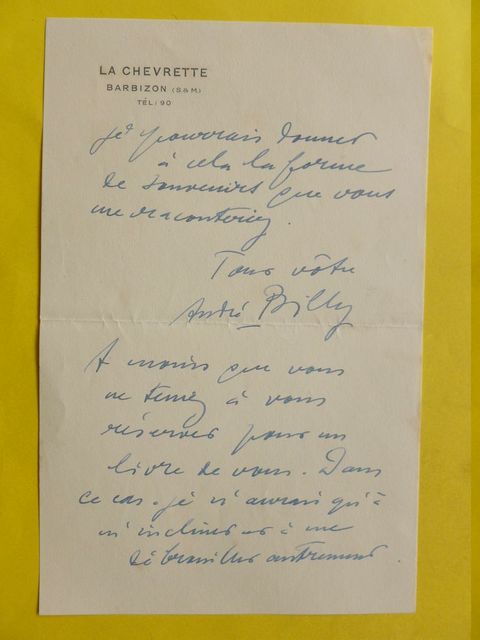 LA CHEVRETTE
BARBIZON (S & M)
TÉL : 90
je pourrais donner
à cela la forme
de souvenirs que vous
me raconteriez.
Tout vôtre
André Billy
A moins que vous
ne teniez à vous
réserver pour un
livre de vous. Dans
ce cas, je n'aurais qu'à
m'incliner et à me
débrouiller autrement.